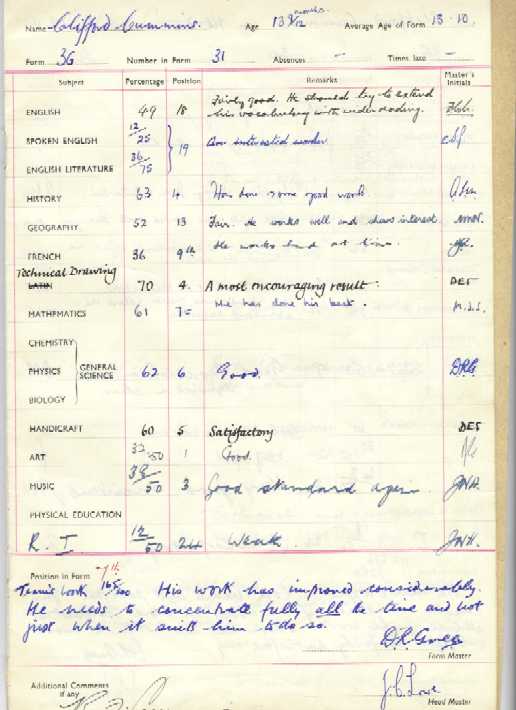 Name Clifford Cummins. Age 13 9/12 months Average Age of Form 13.10.
Form 3G Number in Form 31 Absences - Times late -
Subject Percentage Position Remarks Master's Initials
ENGLISH 49 18 Fairly good. He should try to extend his vocabulary with understanding.
SPOKEN ENGLISH 12/25 19 An interested worker
ENGLISH LITERATURE 36/75
HISTORY 63 4. Has done some good work.
GEOGRAPHY 52 13 Fair. He works well and shows interest.
FRENCH 36 9th He works hard at times.
Technical Drawing
LATIN 70 4. A most encouraging result. DET
MATHEMATICS 61 7= He has done his best. M.J.S.
CHEMISTRY
PHYSICS GENERAL SCIENCE 62 6 Good. DRG
BIOLOGY
HANDICRAFT 60 5 Satisfactory DET
ART 32/50 1 Good.
MUSIC 38/50 3 Good standard again. JWH.
PHYSICAL EDUCATION
R. I. 12/50 24 Weak. JWH.
Position in Form 7th
Term's Work 165/200 His work has improved considerably.
He needs to concentrate fully all the time and not
just when it suits him to do so.
Form Master
Additional Comments
if any
J.C. Lowe
Head Master